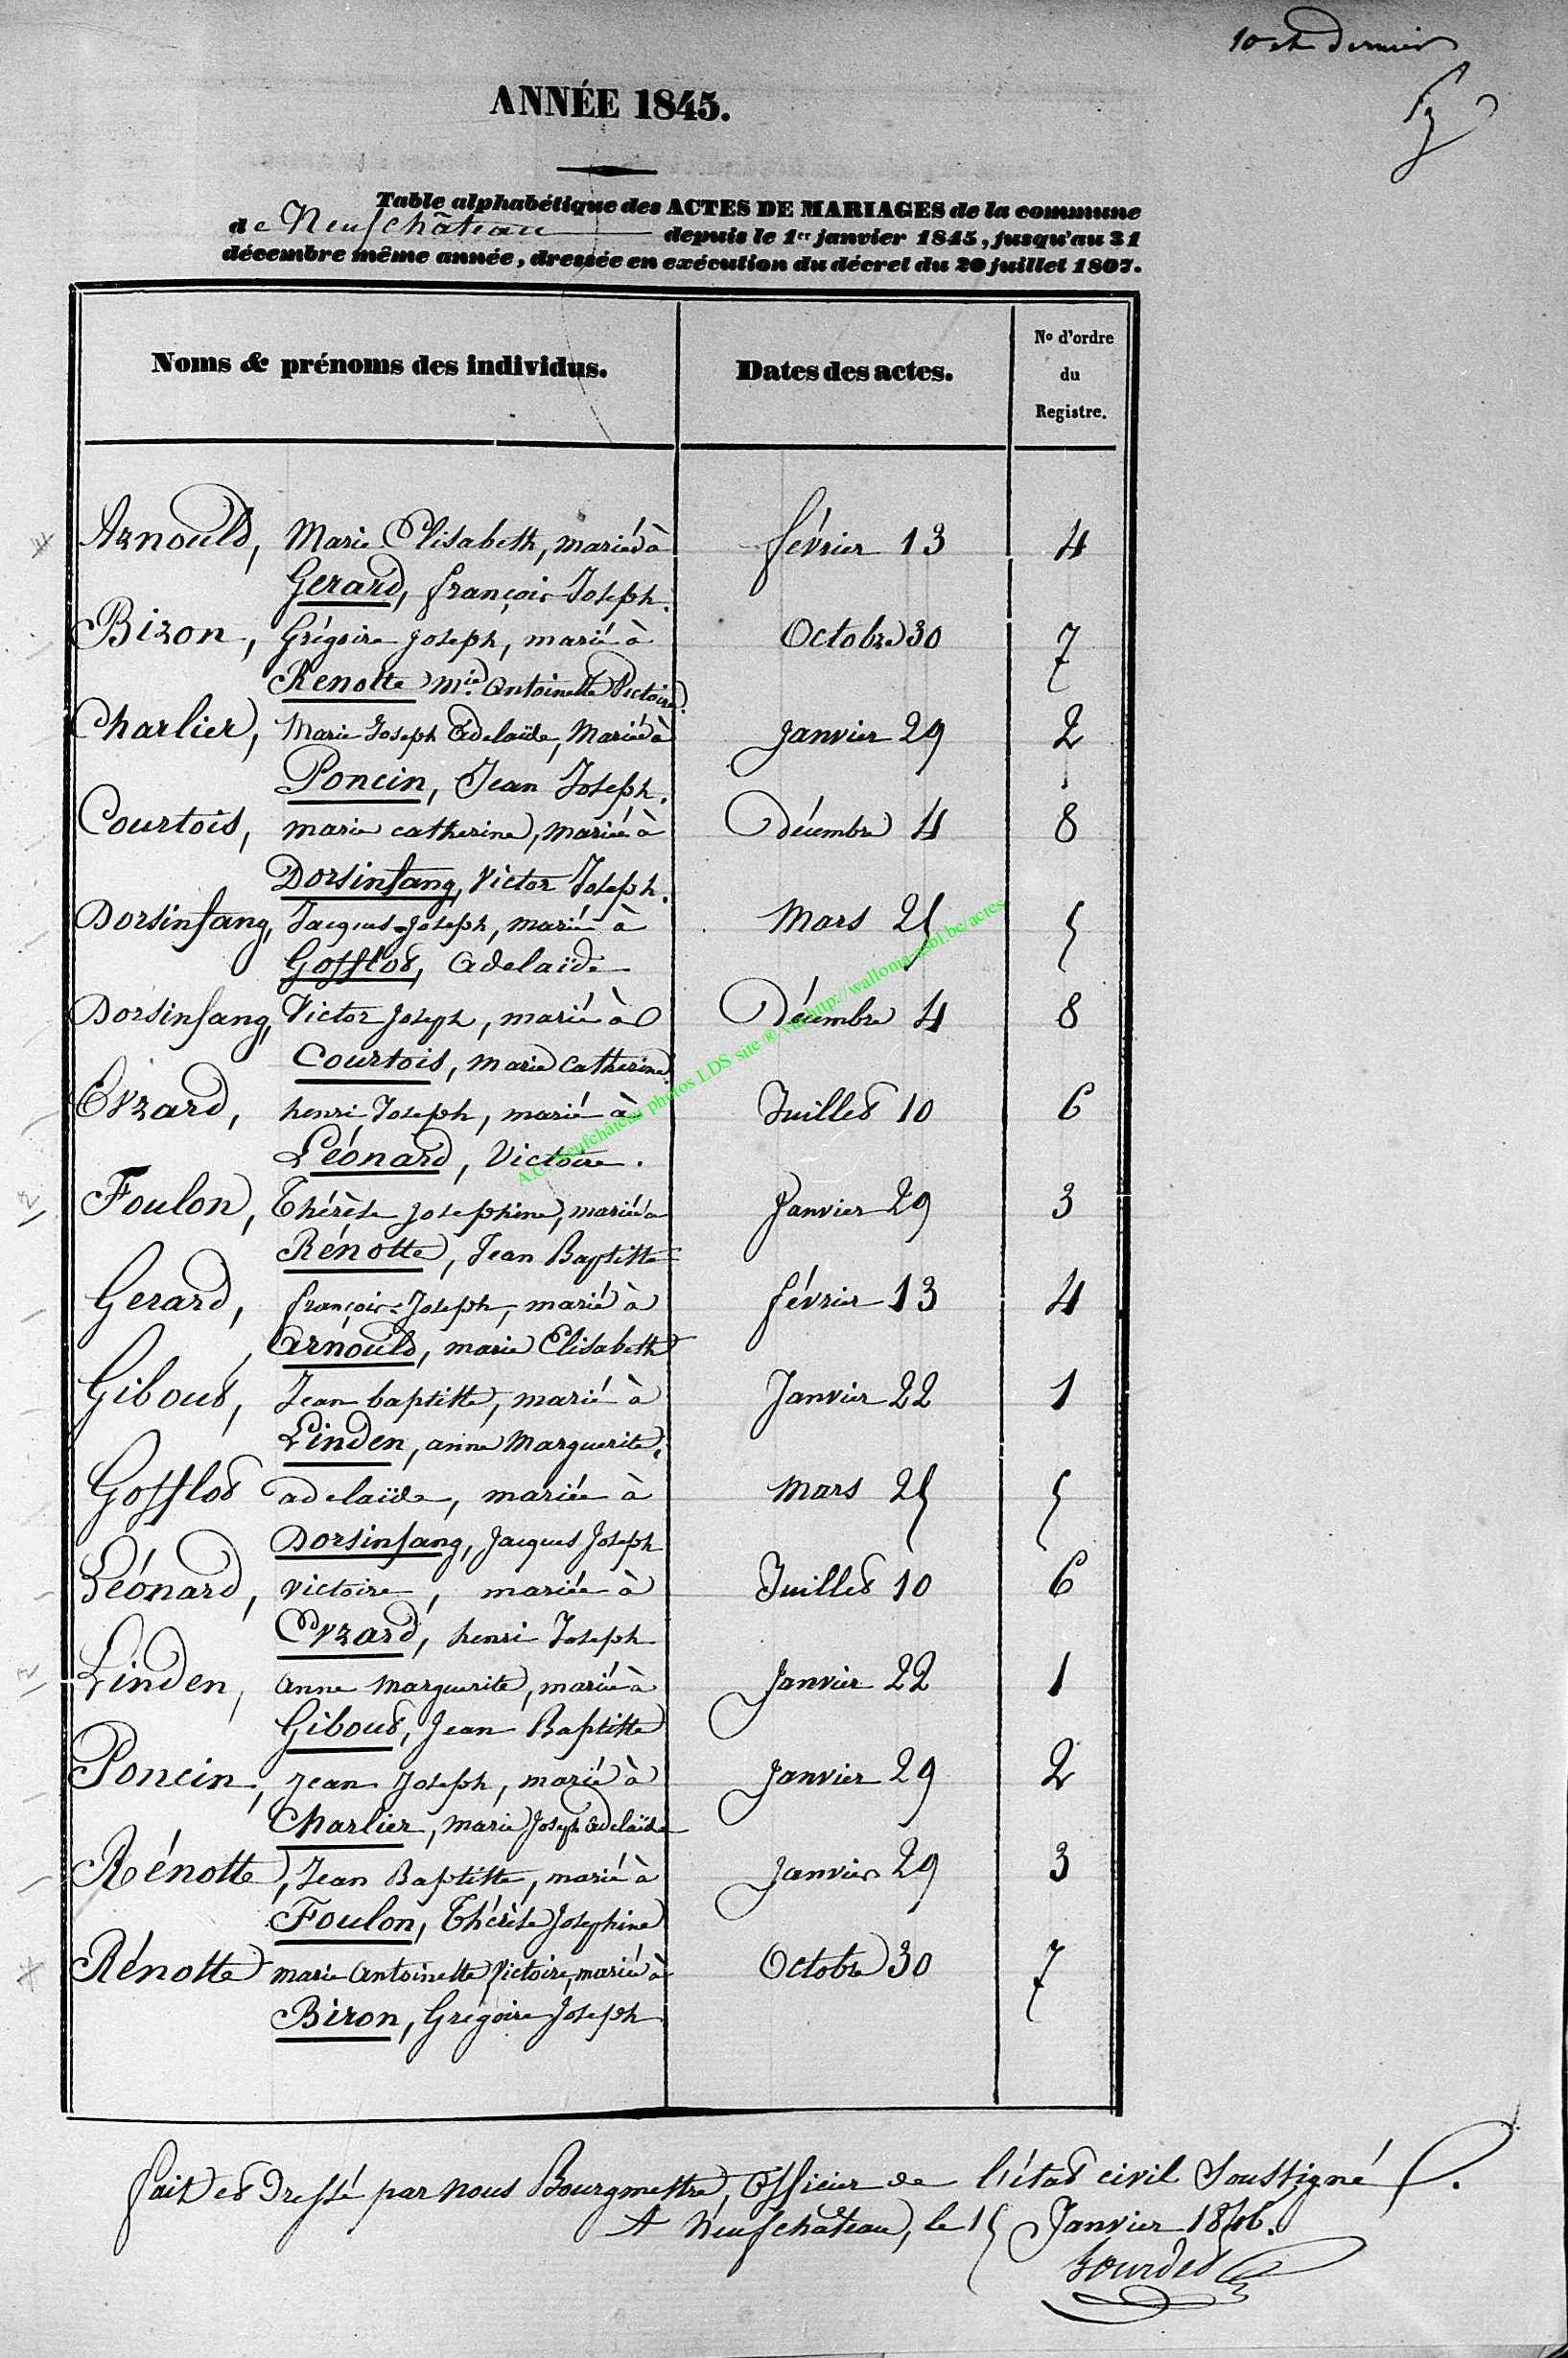 10 et dernier
ANNÉE 1845.
Table alphabétique des ACTES DE MARIAGES de la commune
de Neufchâteau depuis le 1er janvier 1845, jusqu'au 31
décembre même année, dressée en exécution du décret du 20 juillet 1807.
Noms & prénoms des individus. Dates des actes. No d'ordre du Registre.
Arnould, Marie Elisabeth, mariée à février 13 4
Gerard, françois Joseph.
Biron, Grégoire joseph, marié à Octobre 30 7
Renotte Mie. Antoinette Victoire.
Charlier, Marie Joseph Adelaïde, Mariée à Janvier 29 2
Poncin, Jean Joseph.
Courtois, marie catherine, mariée à Décembre 4 8
Dorsinfang, Victor Joseph.
Dorsinfang, Jacques Joseph, marié à Mars 25 5
Gofflot, Adelaïde
Dorsinfang, Victor Joseph, marié à Décembre 4 8
Courtois, Marie Catherine.
Evrard, henri Joseph, marié à Juillet 10 6
Léonard, Victoire.
Foulon, Thérèse Josephine, mariée à Janvier 29 3
Rénotte, Jean Baptiste
Gerard, françois Joseph, marié à février 13 4
Arnould, marie Elisabeth
Gibout, Jean baptiste, marié à Janvier 22 1
Linden, anne Marguerite.
Gofflot adelaïde, mariée à Mars 25 5
Dorsinfang, Jacques Joseph
Léonard, victoire, mariée à Juillet 10 6
Evrard, henri Joseph
Linden, anne Marguerite, mariée à Janvier 22 1
Gibout, Jean Baptiste
Poncin, Jean Joseph, marié à Janvier 29 2
Charlier, Marie Joseph Adelaïde
Rénotte, Jean Baptiste, marié à Janvier 29 3
Foulon, Thérèse Josephine
Rénotte marie Antoinette Victoire, mariée à Octobre 30 7
Biron, Grégoire Joseph
fait et Dressé par nous Bourgmestre, Officier de l'état civil Soussigné
A Neufchâteau, le 15 Janvier 1846.
A.C. Neufchâteau photos LDS site ® via http://wallonia-asbl.be/actes